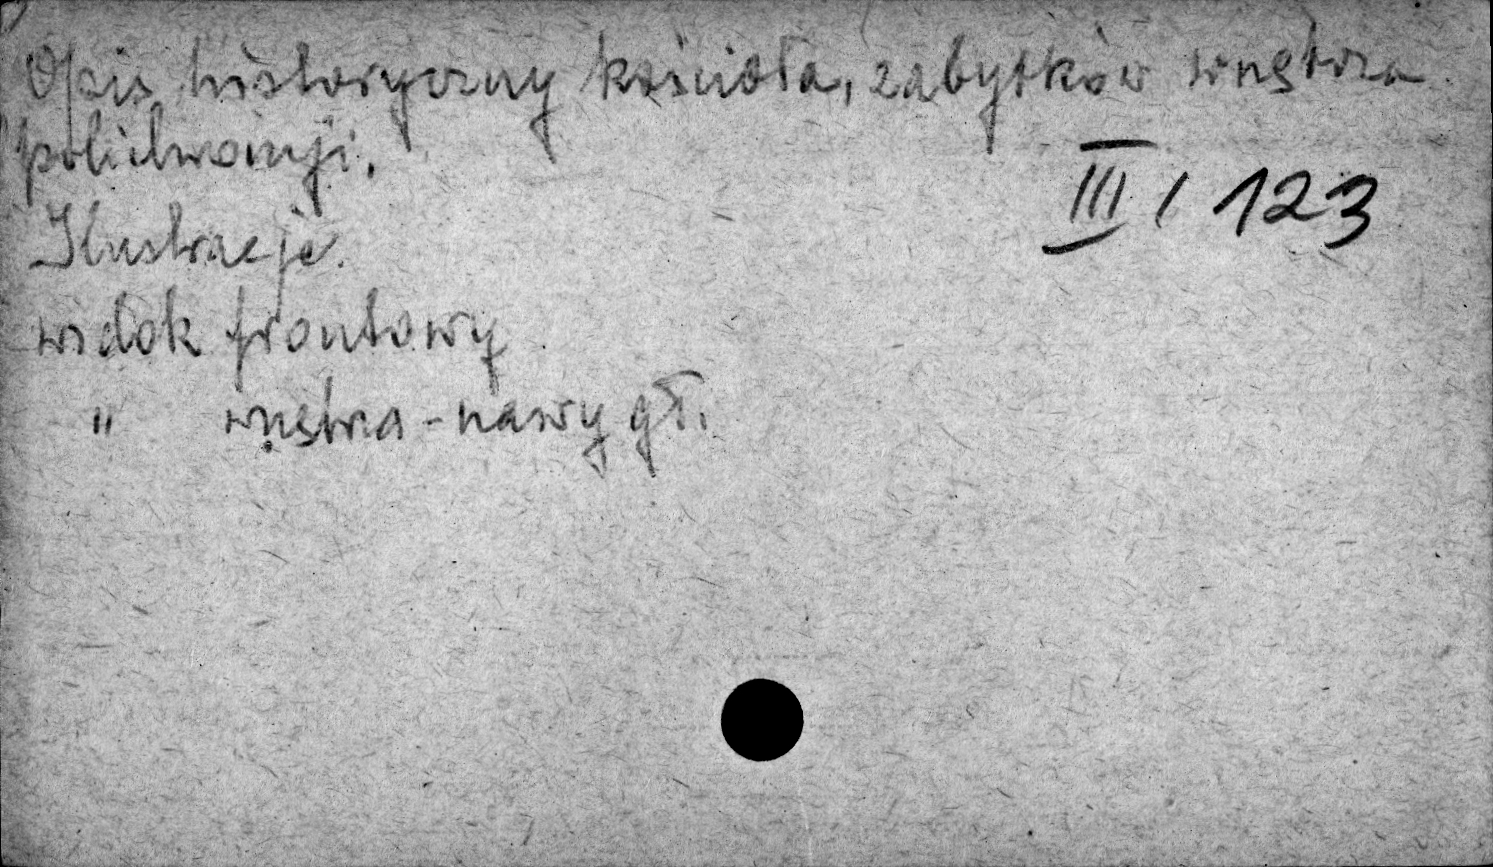 Opis historyczny kościoła, zabytków wnętrza
polichromji.
III / 123
Ilustracje.
widok frontowy
" wnętrza - nawy gł.